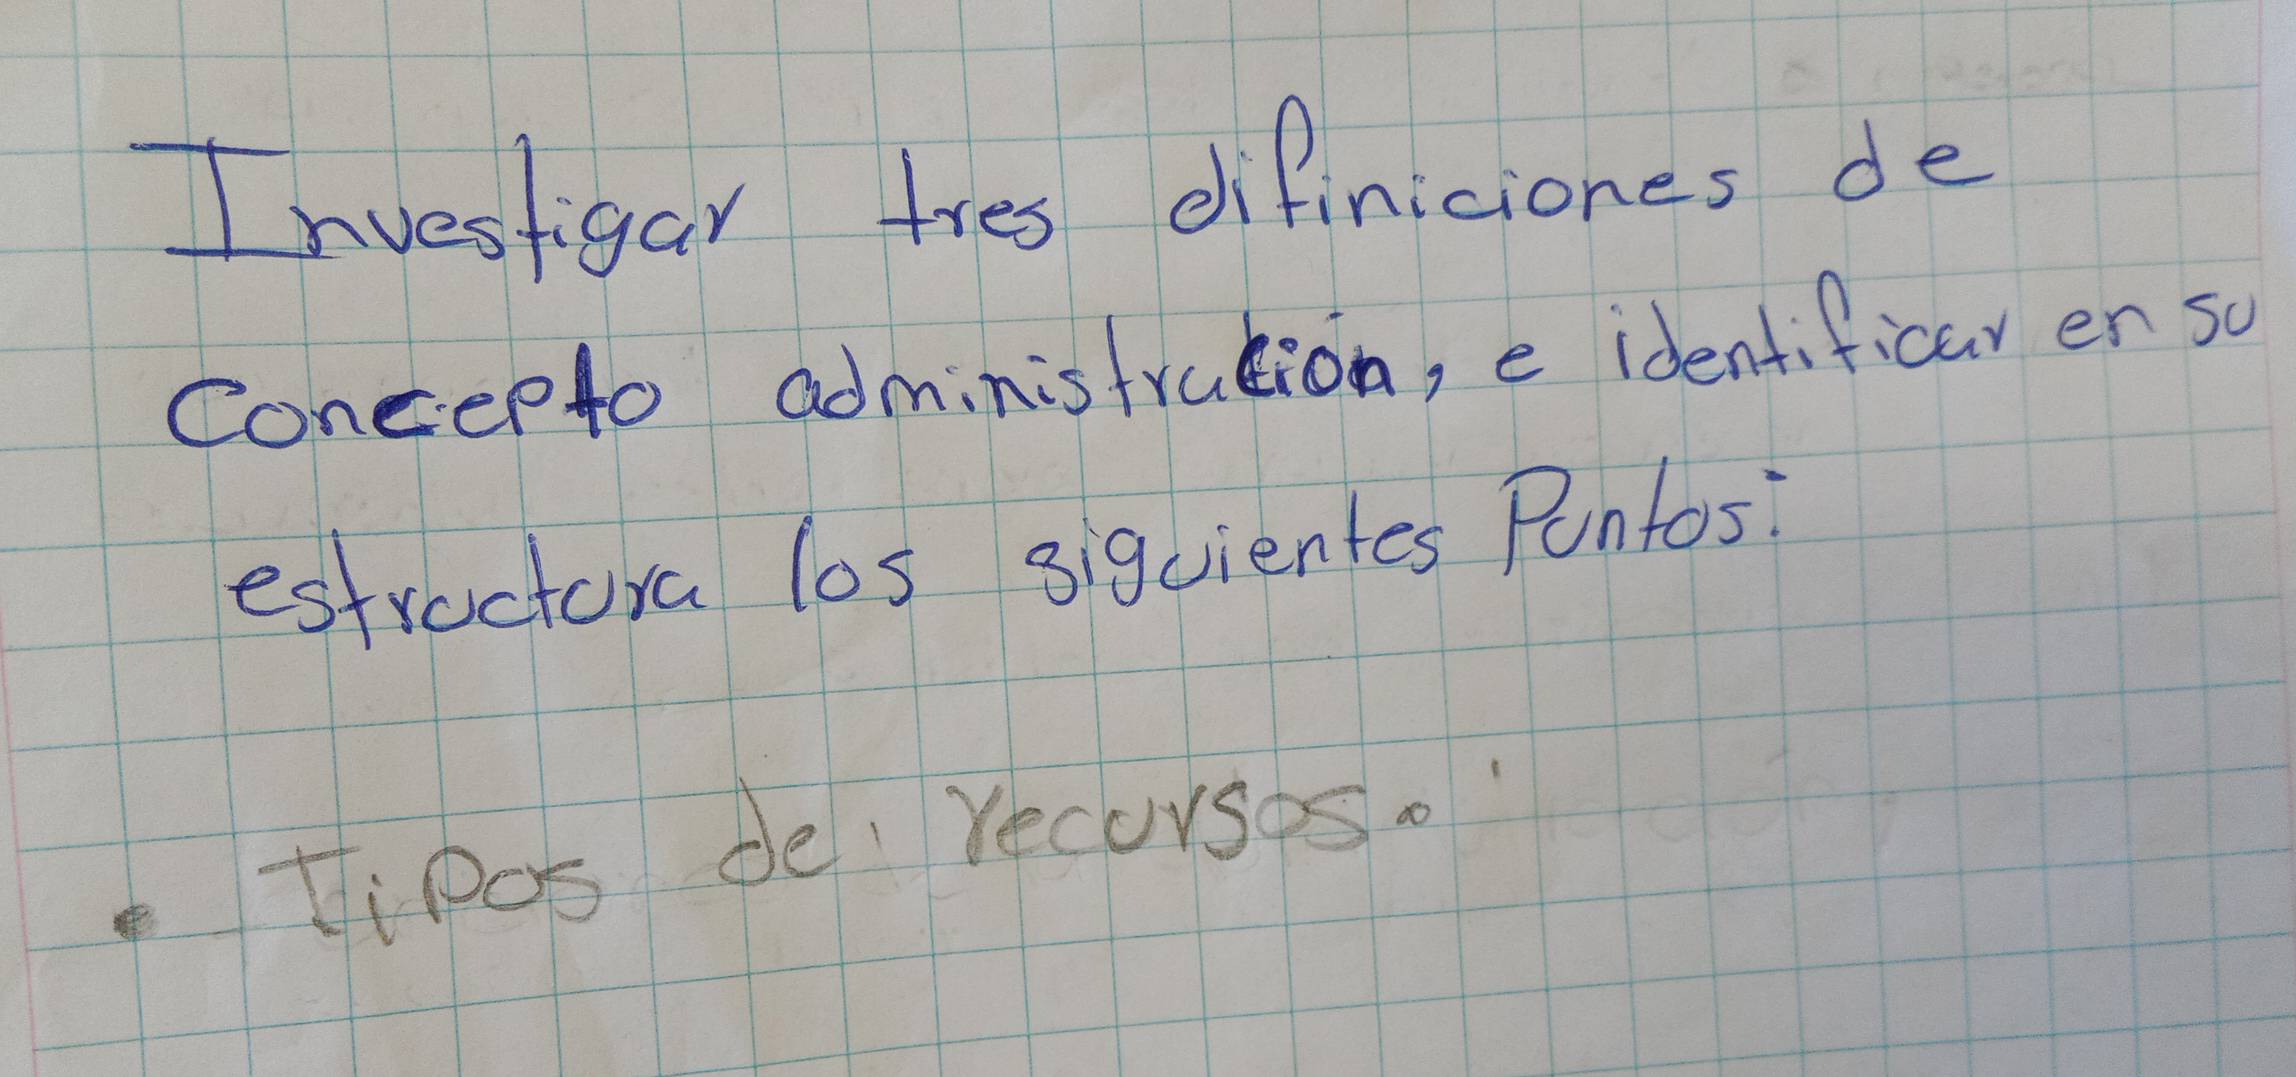 Investigar tres difiniciones de
Concepto administración, e identificar en su
estructura los siguientes Puntos:
• Tipos de recursos.